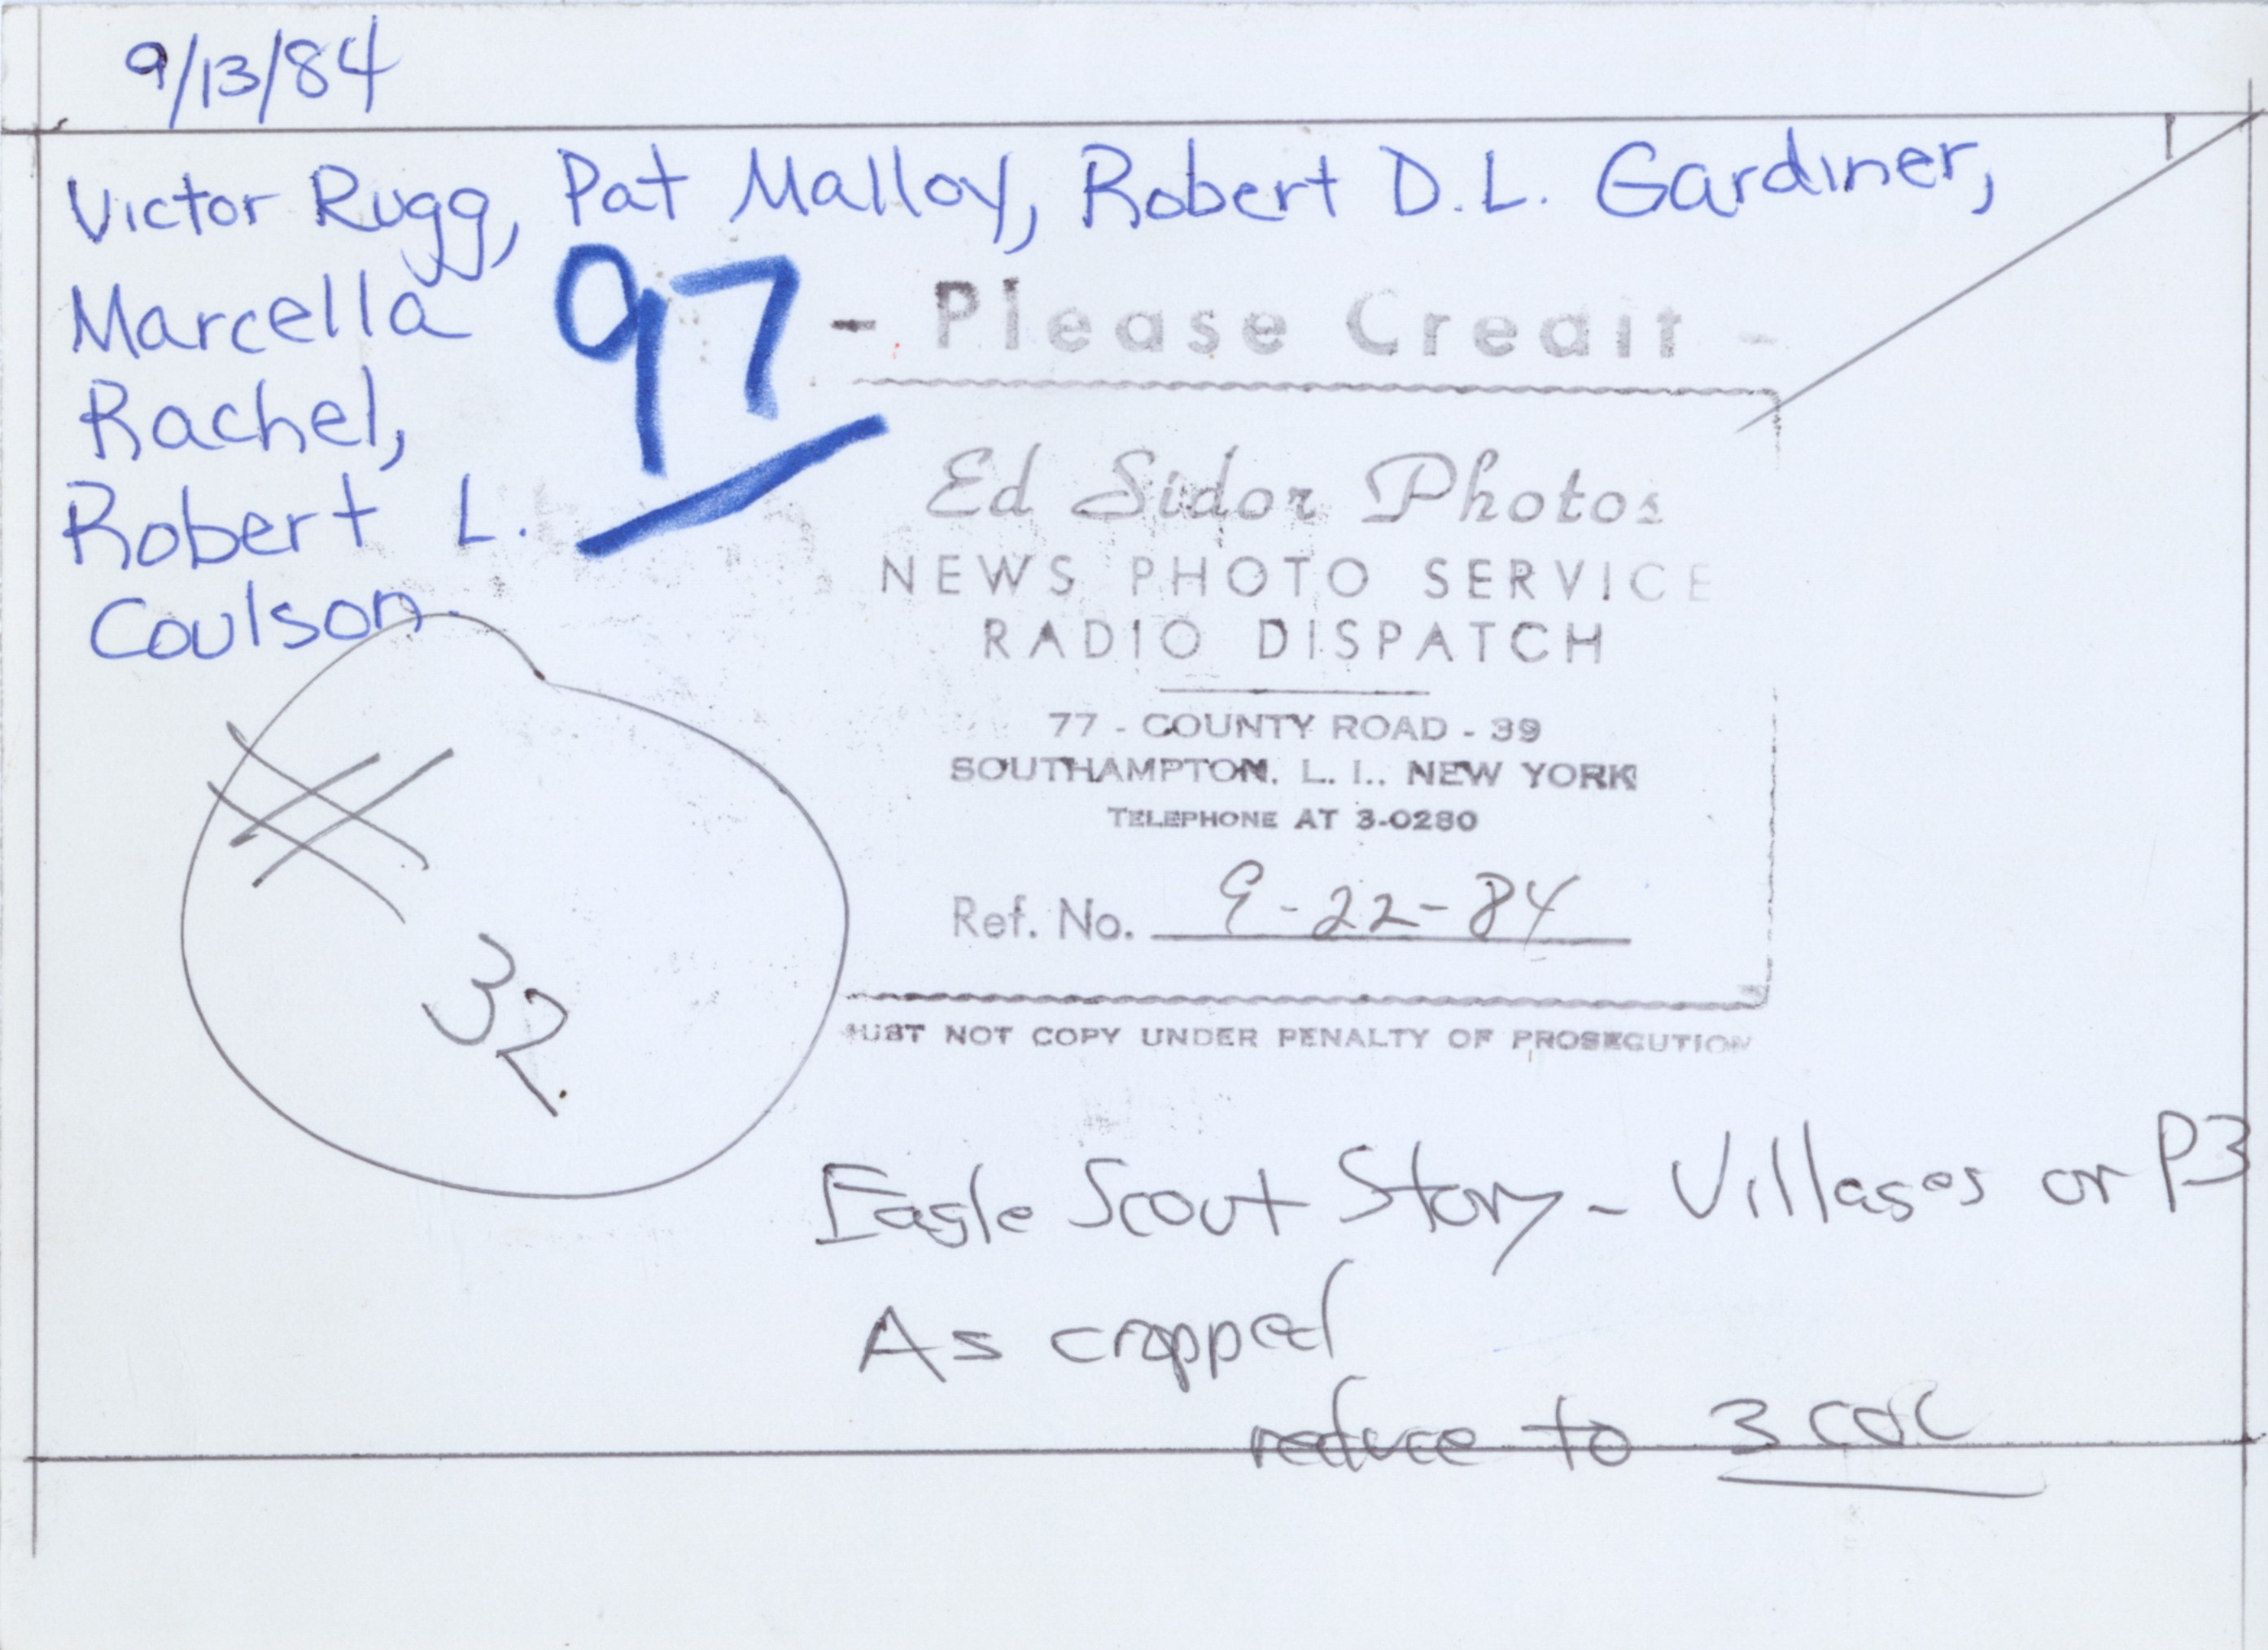 9/13/84
Victor Rugg, Pat Malloy, Robert D.L. Gardiner,
Marcella
Rachel,
Robert L.
Coulson
97
- Please Credit -
Ed Sidor Photos
NEWS PHOTO SERVICE
RADIO DISPATCH
77 - COUNTY ROAD - 39
SOUTHAMPTON, L. I., NEW YORK
TELEPHONE AT 3-0280
Ref. No. 9-22-84
MUST NOT COPY UNDER PENALTY OF PROSECUTION
# 32
Eagle Scout Story - Villages or P3
As cropped
reduce to 3 col